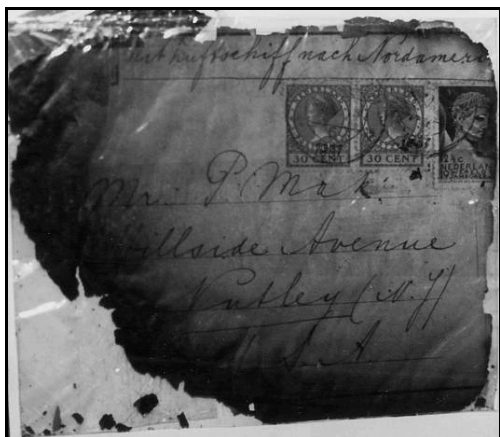 mit Luftschiff nach Nordameri
30 CENT 30 CENT
NEDERLAN
Mr. P. Mak.
Hillside Avenue
Nutley (N.J)
U.S.A